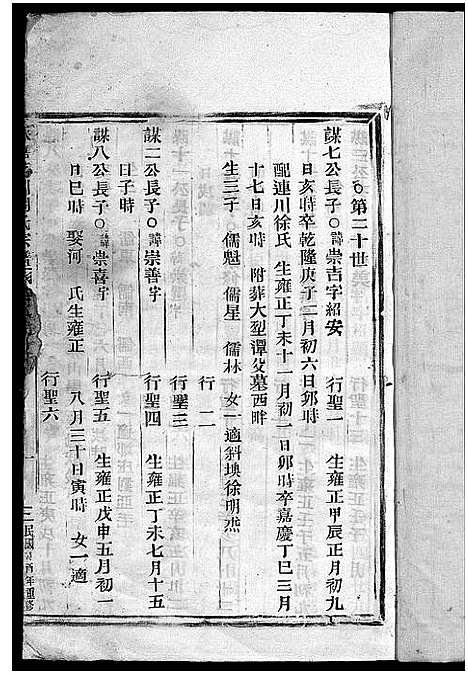 第二十世
謀七公長子〇諱崇吉字紹安 行聖一 生雍正甲辰正月初九
日亥時卒乾隆庚子二月初六日卯時
配連川徐氏 生雍正丁未十一月初一日卯時卒嘉慶丁巳三月
十七日亥時 附葬大型潭父墓西畔
生三子 儒魁 儒星 儒林 女一適斜墺徐明𤋮
行 二
行聖三
謀二公長子〇諱崇善字 行聖四 生雍正丁未七月十五
日子時
謀八公長子〇諱崇喜字 行聖五 生雍正戊申五月初一
日巳時 娶河 氏生雍正 八月三十日寅時 女一適
行聖六
民國 年重修